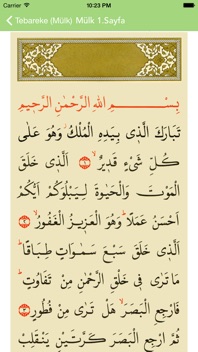 Carrier 10:23 PM
Tebareke (Mülk) Mülk 1.Sayfa
بِسْــــمِ اللهِ الرَّحْمٰنِ الرَّحِيمِ
تَبَارَكَ الَّذ۪ي بِيَدِهِ الْمُلْكُۘ وَهُوَ عَلٰى
كُلِّ شَيْءٍ قَد۪يرٌۙ ﴿١﴾ اَلَّذ۪ي خَلَقَ
الْمَوْتَ وَالْحَيٰوةَ لِيَبْلُوَكُمْ اَيُّكُمْ
اَحْسَنُ عَمَلًاۜ وَهُوَ الْعَز۪يزُ الْغَفُورُۙ ﴿٢﴾
اَلَّذ۪ي خَلَقَ سَبْعَ سَمٰوَاتٍ طِبَاقًاۜ
مَا تَرٰى ف۪ي خَلْقِ الرَّحْمٰنِ مِنْ تَفَاوُتٍۜ
فَارْجِعِ الْبَصَرَۙ هَلْ تَرٰى مِنْ فُطُورٍ ﴿٣﴾
ثُمَّ ارْجِعِ الْبَصَرَ كَرَّتَيْنِ يَنْقَلِبْ